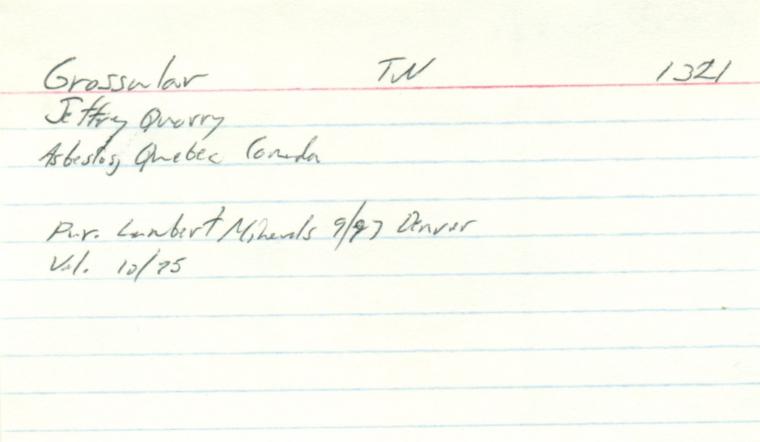 Grossular TN 1321
Jeffrey Quarry
Asbestos, Quebec Canada
Pur. Lambert Minerals 9/97 Denver
Val. 10/75